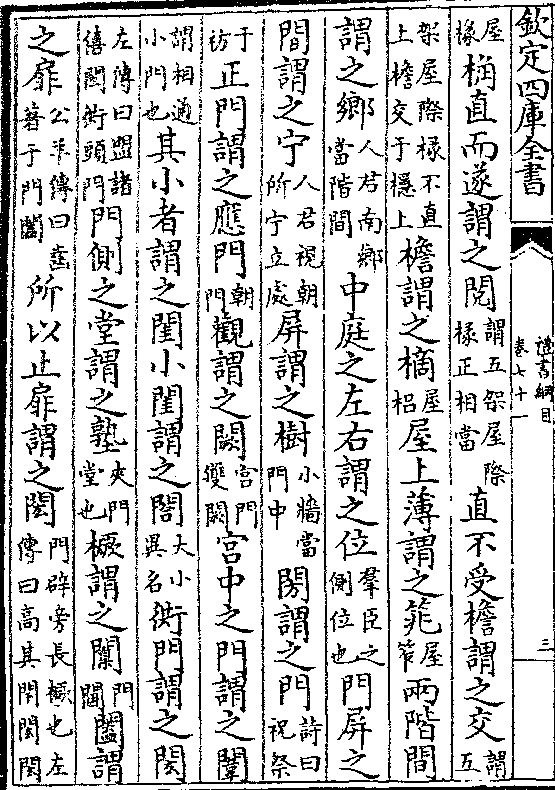 欽定四庫全書
禮書綱目
卷七十一
三
屋椽桷直而遂謂之閱謂五架屋際椽正相當直不受檐謂之交謂五
架屋際椽不直上檐交于檼上檐謂之樀屋梠屋上薄謂之筄屋笮兩階間
謂之鄉人君南鄉當階間中庭之左右謂之位羣臣之側位也門屏之
間謂之宁人君視朝所宁立處屏謂之樹小牆當門中閍謂之門詩曰祝祭
于祊正門謂之應門朝門觀謂之闕宮門雙闕宮中之門謂之闈
謂相通小門也其小者謂之閨小閨謂之閤大小異名衖門謂之閎
左傳曰盟諸僖閎衖頭門門側之堂謂之塾夾門堂也橛謂之闑門閫闔謂
之扉公羊傳曰齒著于門闔所以止扉謂之閎門辟旁長橛也左傳曰高其閈閎閎